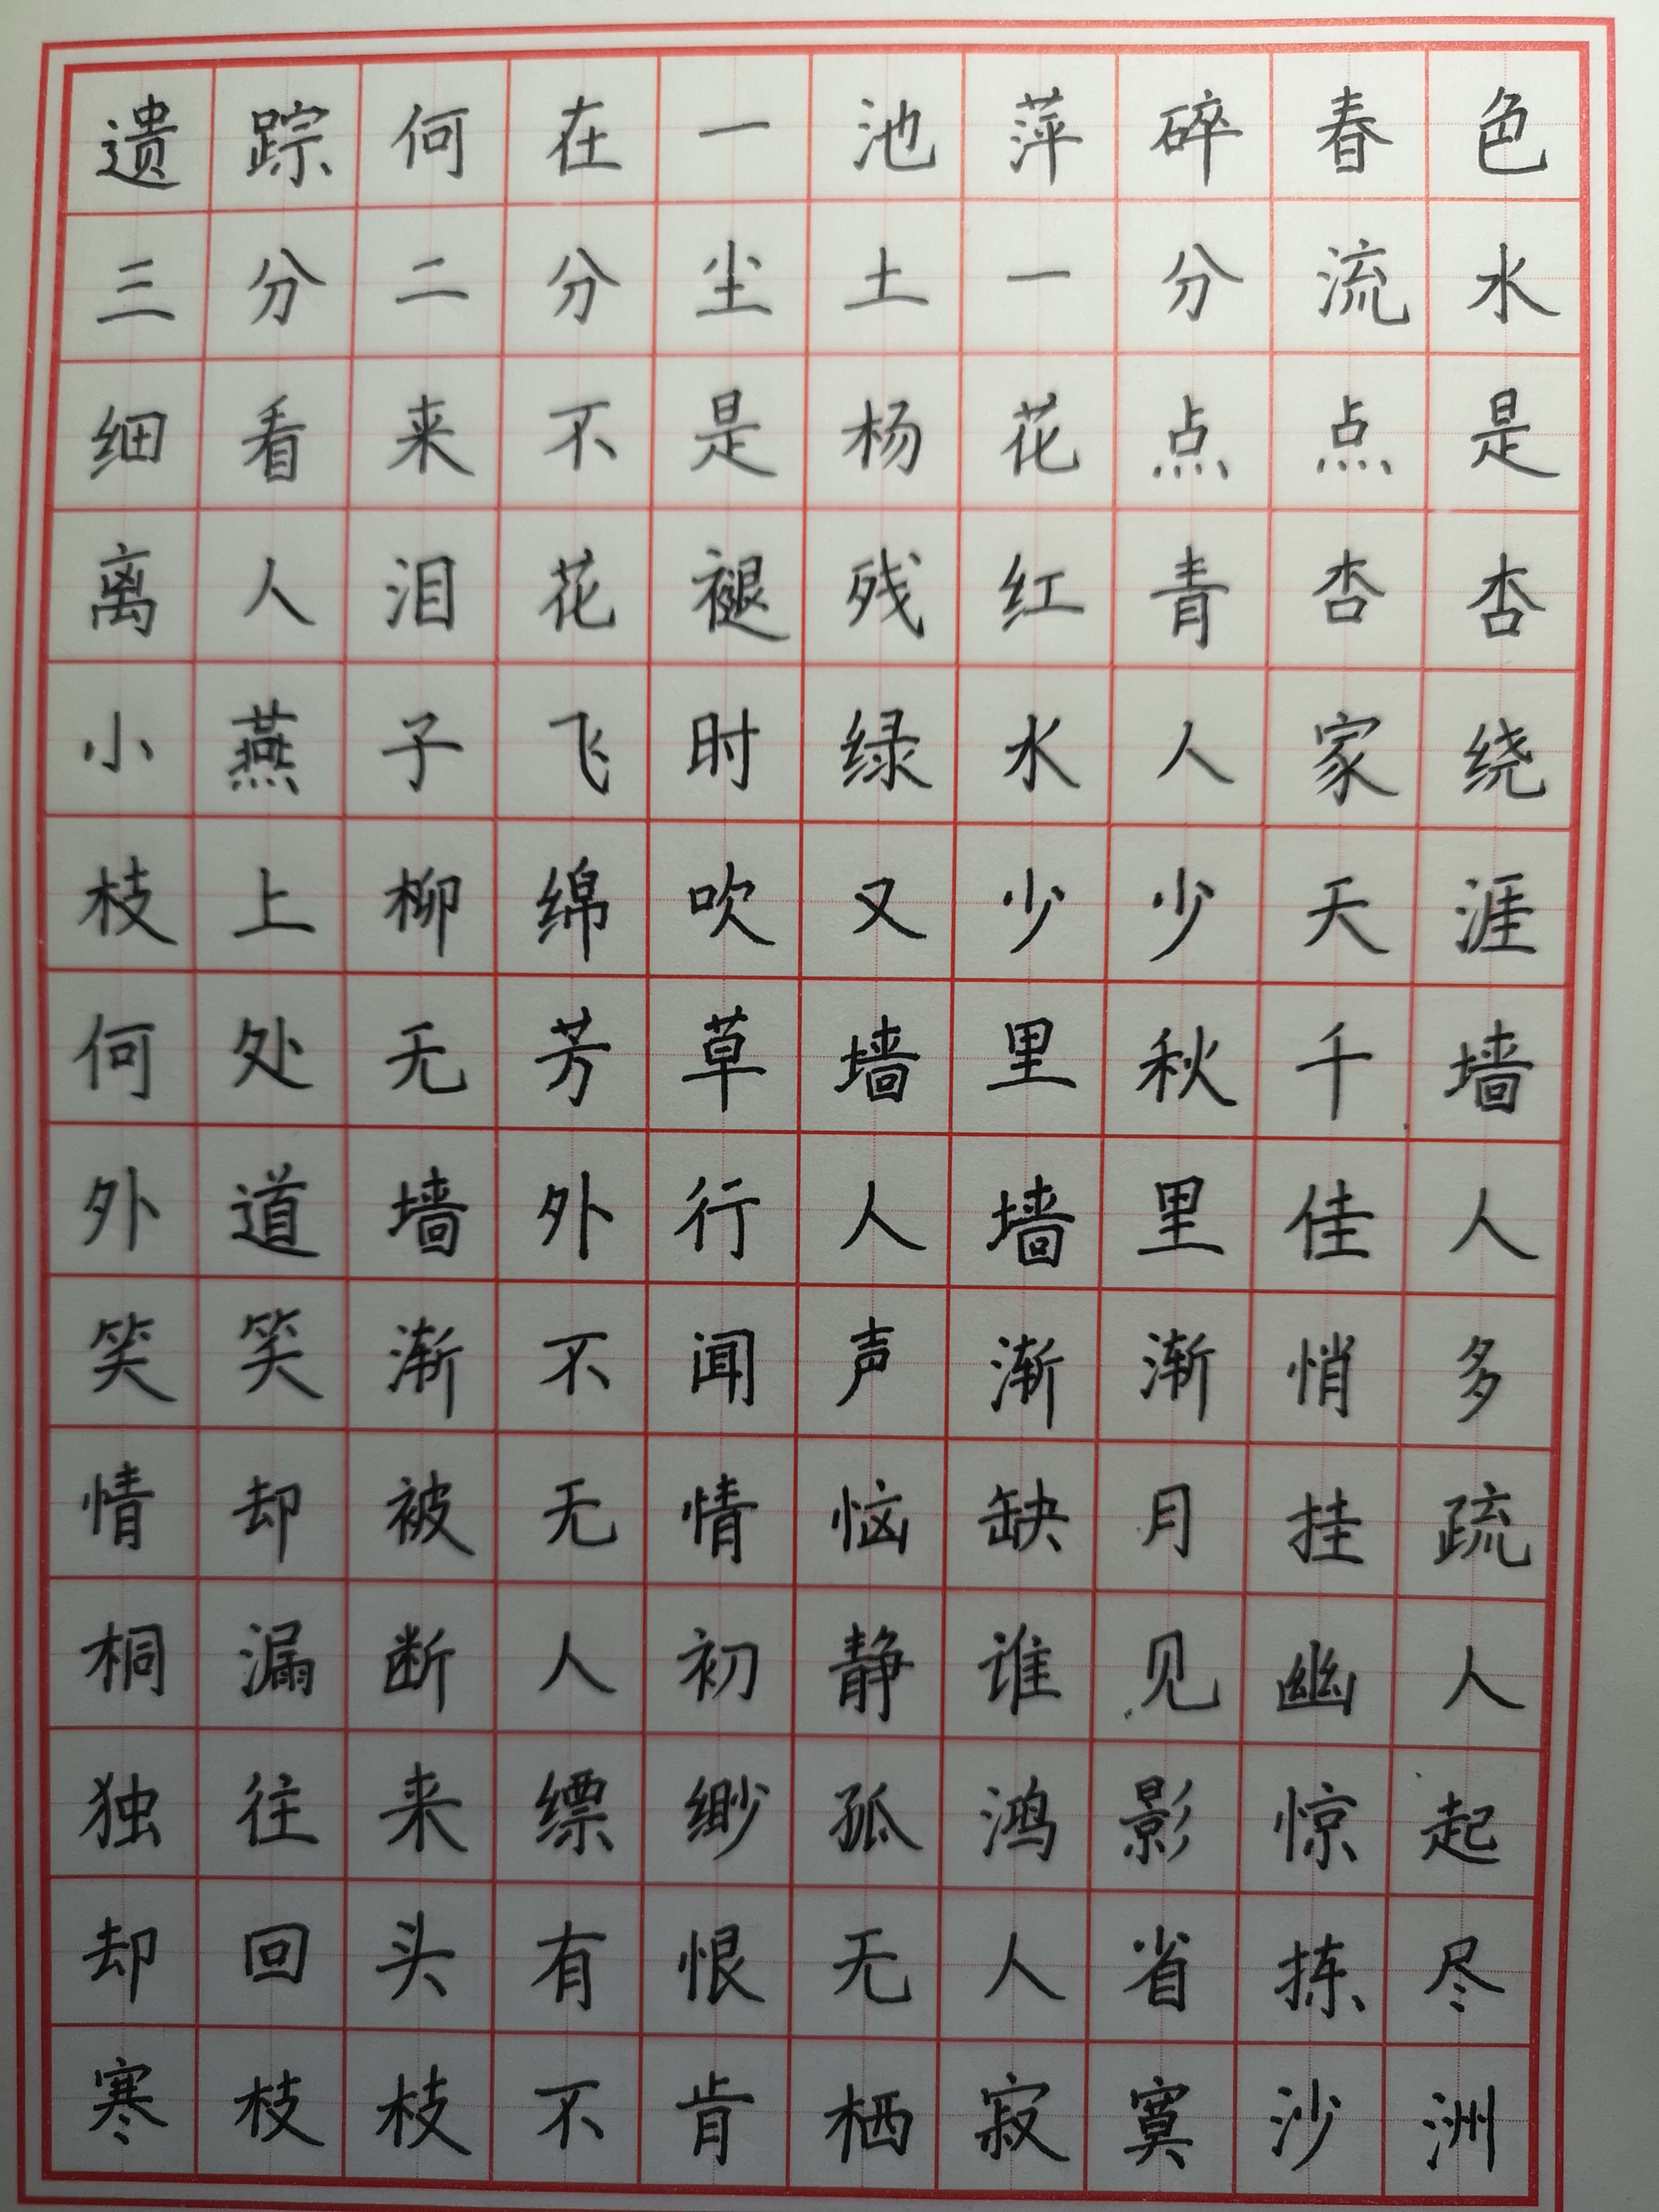 遗踪何在一池萍碎春色
三分二分尘土一分流水
细看来不是杨花点点是
离人泪花褪残红青杏杏
小燕子飞时绿水人家绕
枝上柳绵吹又少少天涯
何处无芳草墙里秋千墙
外道墙外行人墙里佳人
笑笑渐不闻声渐渐悄多
情却被无情恼缺月挂疏
桐漏断人初静谁见幽人
独往来缥缈孤鸿影惊起
却回头有恨无人省拣尽
寒枝枝不肯栖寂寞沙洲